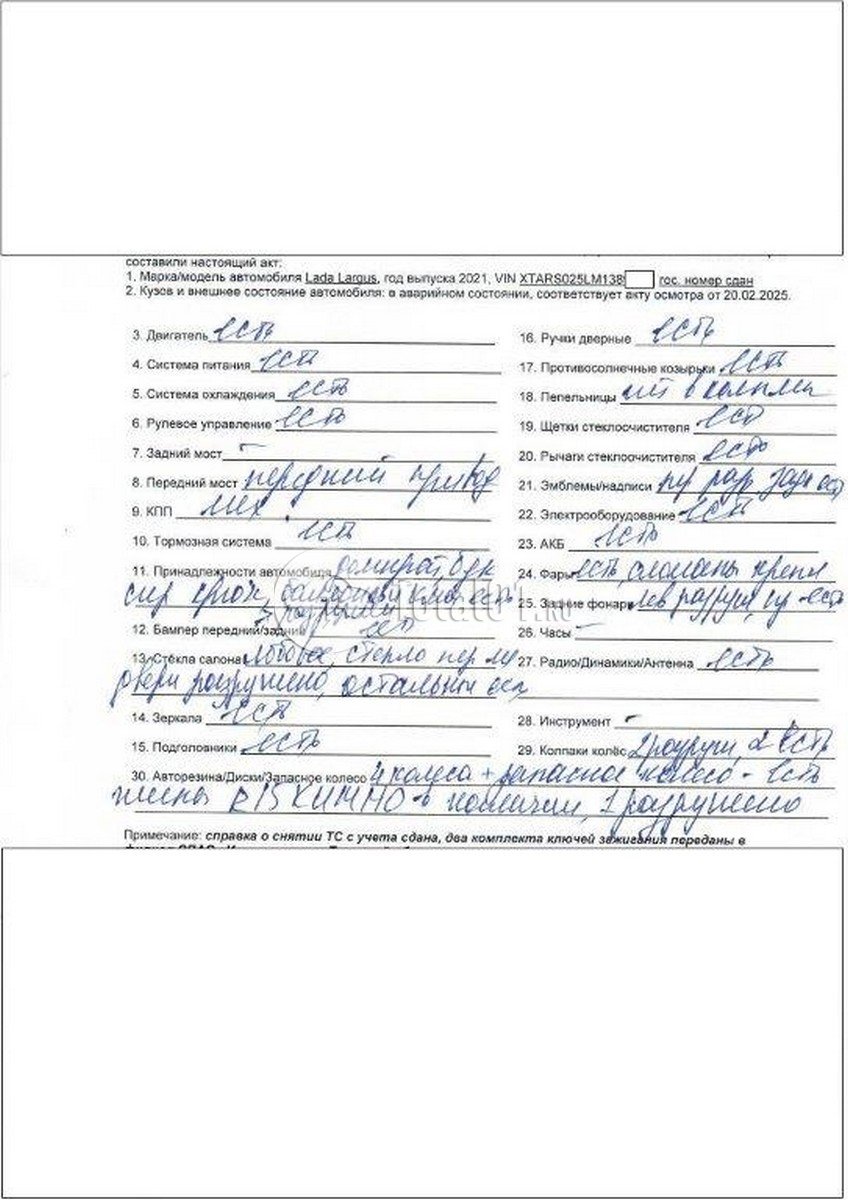 составили настоящий акт:
1. Марка/модель автомобиля Lada Largus, год выпуска 2021, VIN XTARS025LM138 гос. номер сдан
2. Кузов и внешнее состояние автомобиля: в аварийном состоянии, соответствует акту осмотра от 20.02.2025.
3. Двигатель есть
4. Система питания есть
5. Система охлаждения есть
6. Рулевое управление есть
7. Задний мост –
8. Передний мост передний привод
9. КПП мех
10. Тормозная система есть
11. Принадлежности автомобиля домкрат, букс
баллонный ключ есть
12. Бампер передний/задний разрушен есть
13. Стёкла салона лобовое, стекло пер
двери разрушено, остальные есть
14. Зеркала есть
15. Подголовники есть
16. Ручки дверные есть
17. Противосолнечные козырьки есть
18. Пепельницы нет в
19. Щетки стеклоочистителя есть
20. Рычаги стеклоочистителя есть
21. Эмблемы/надписи пер разр задн есть
22. Электрооборудование есть
23. АКБ есть
24. Фары есть, сломаны креп
25. Задние фонари лев разруш, пр - есть
26. Часы –
27. Радио/Динамики/Антенна есть
28. Инструмент –
29. Колпаки колёс 2 разруш, 2 есть
30. Авторезина/Диски/Запасное колесо 4 колеса + запасное колесо - есть
R15 1 разрушено
Примечание: справка о снятии ТС с учета сдана, два комплекта ключей зажигания переданы в
Total01.RU